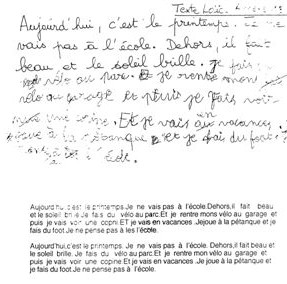 Texte Loïc.
Aujourd'hui, c'est le printemps. Je ne
vais pas à l'école. Dehors, il fait
beau et le soleil brille. Je fais
vélo au parc. Et je rentre mon
vélo au garage et puis je fais voir
une copine. Et je vais en vacances.
joue à la pétanque et je fais du foot.
Aujourd'hui,c'est le printemps.Je ne vais pas à l'école.Dehors,il fait beau
et le soleil brille.Je fais du vélo au parc.Et je rentre mons vélo au garage et
puis je vais voir une copin.ET je vais en vacances.Joue à la pétanque et je
fais du foot.Je ne pense pas à les l'école.
Aujourd'hui,c'est le printemps. Je ne vais pas à l'école.Dehors,il fait beau et
le soleil brille. Je fais du vélo au parc.Et je rentre mon vélo au garage et
puis je vais voir une copine et Et je vais en vacances .Je joue à la pétanque et
je fais du foot.Je ne pense pas à l'école.